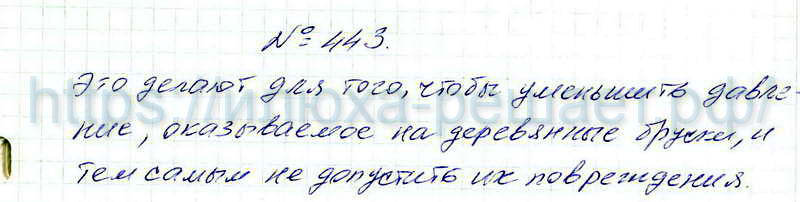 № 443.
Это делают для того, чтобы уменьшить давле-
ние, оказываемое на деревянные бруски, и
тем самым не допустить их повреждения.